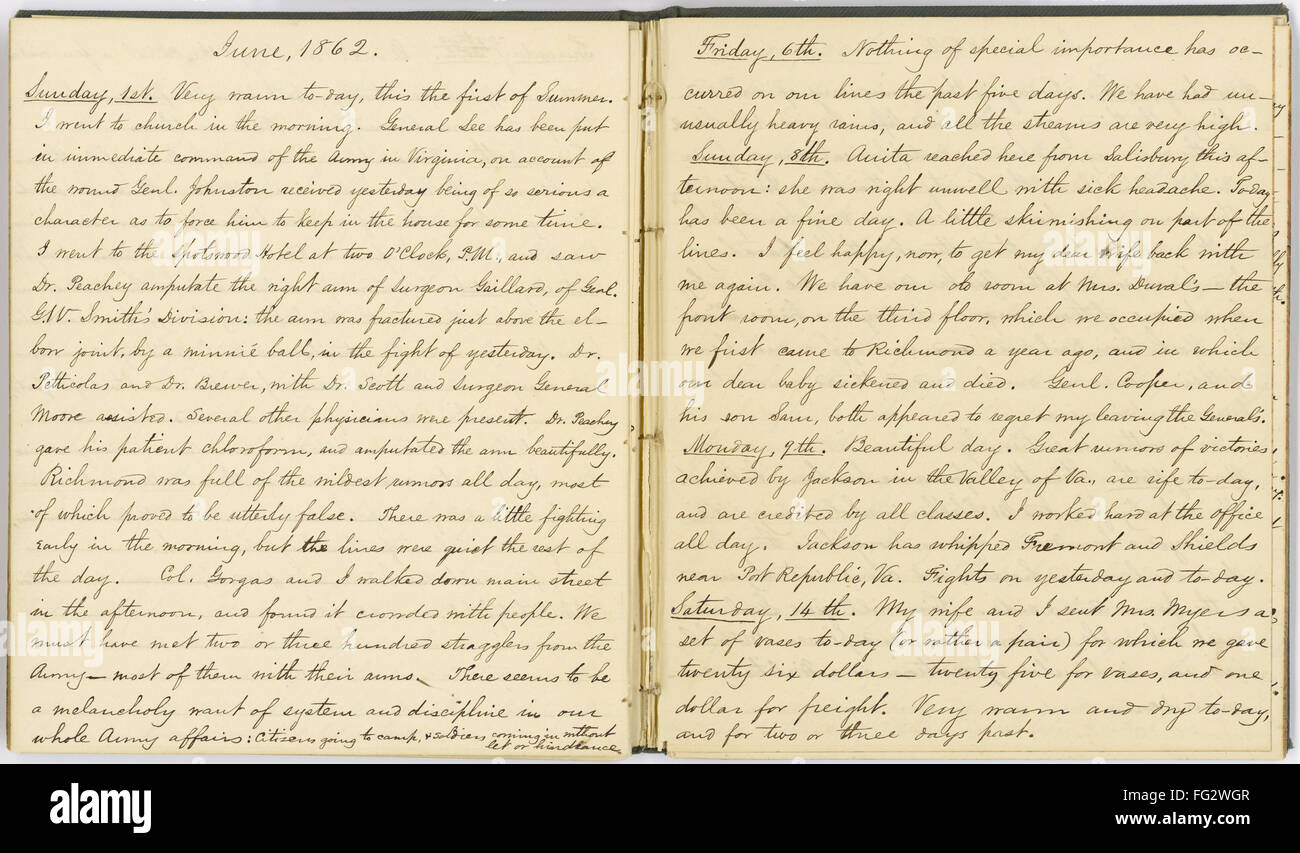 June, 1862.
Sunday, 1st. Very warm to-day, this the first of Summer.
I went to church in the morning. General Lee has been put
in immediate command of the Army in Virginia, on account of
the wound Genl. Johnston received yesterday being of so serious a
character as to force him to keep in the house for some time.
I went to the Spotswood Hotel at two O'Clock, P.M., and saw
Dr. Peachey amputate the right arm of Surgeon Gaillard, of Genl.
G.W. Smith's Division: the arm was fractured just above the el-
bow joint, by a minnié ball, in the fight of yesterday. Dr.
Petticolas and Dr. Brewer, with Dr. Scott and Surgeon General
Moore assisted. Several other physicians were present. Dr. Peachey
gave his patient chloroform, and amputated the arm beautifully.
Richmond was full of the wildest rumors all day, most
of which proved to be utterly false. There was a little fighting
early in the morning, but the lines were quiet the rest of
the day. Col. Gorgas and I walked down main street
in the afternoon, and found it crowded with people. We
must have met two or three hundred stragglers from the
Army — most of them with their arms. There seems to be
a melancholy want of system and discipline in our
whole Army affairs: Citizens going to camp, & soldiers coming in without
let or hindrance.
Friday, 6th. Nothing of special importance has oc-
curred on our lines the past five days. We have had un-
usually heavy rains, and all the streams are very high.
Sunday, 8th. Anita reached here from Salisbury this af-
ternoon: she was right unwell with sick headache. To-day
has been a fine day. A little skirmishing on part of the
lines. I feel happy, now, to get my dear Wife back with
me again. We have our old room at Mrs. Duval's — the
front room, on the third floor, which we occupied when
we first came to Richmond a year ago, and in which
our dear baby sickened and died. Genl. Cooper, and
his son Sam, both appeared to regret my leaving the General's.
Monday, 9th. Beautiful day. Great rumors of victories
achieved by Jackson in the Valley of Va., are rife to-day,
and are credited by all classes. I worked hard at the office
all day. Jackson has whipped Fremont and Shields
near Port Republic, Va. Fights on yesterday and to-day.
Saturday, 14th. My wife and I sent Mrs. Myers a
set of vases to-day (or rather a pair) for which we gave
twenty six dollars — twenty five for vases, and one
dollar for freight. Very warm and dry to-day,
and for two or three days past.
alamy
Image ID: FG2WGR
www.alamy.com